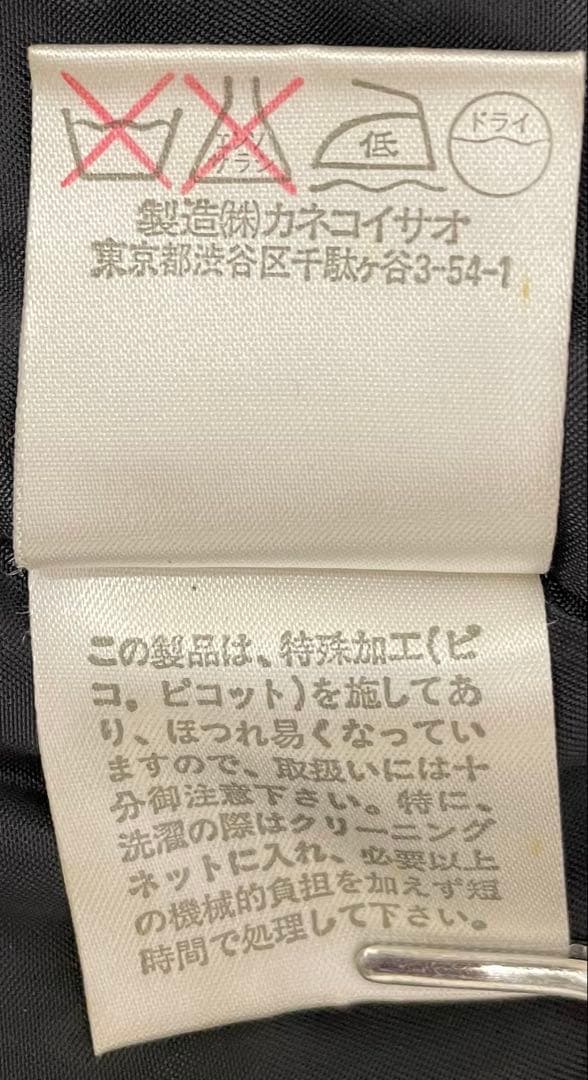 エンソ
サラシ
低
ドライ
製造㈱カネコイサオ
東京都渋谷区千駄ヶ谷3-54-1
この製品は、特殊加工(ピ
コ。ピコット)を施してあ
り、ほつれ易くなってい
ますので、取扱いには十
分御注意下さい。特に、
洗濯の際はクリーニング
ネットに入れ、必要以上
の機械的負担を加えず短
時間で処理して下さい。